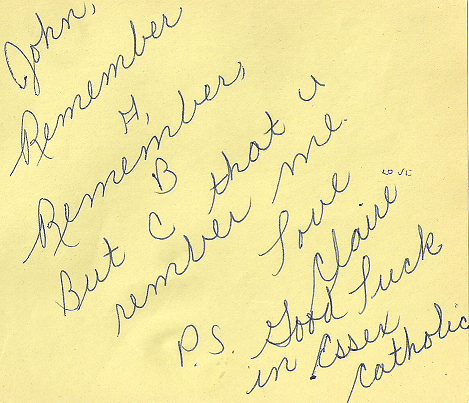 John,
Remember
A,
Remember,
B
But C that u
rember me.
Love
LOVE
Claire
P.S. Good Luck
in Essex
Catholic